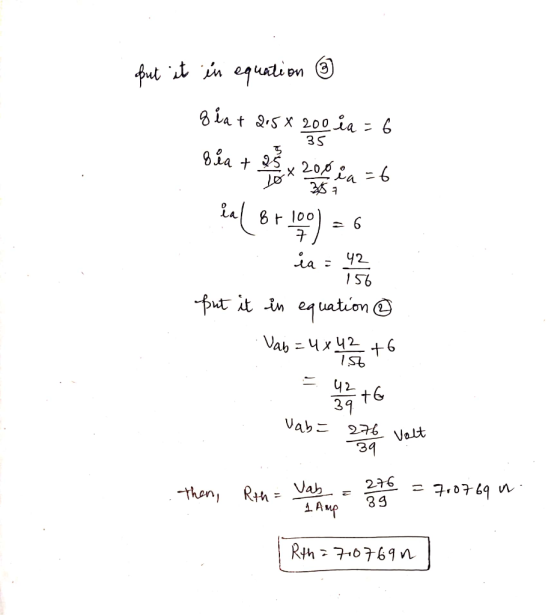 put it in equation ③
8ia + 2.5 × 200/35 ia = 6
8ia + 25/10 × 200/35 ia = 6
5
7
ia(8 + 100/7) = 6
ia = 42/156
put it in equation ②
Vab = 4 × 42/156 + 6
= 42/39 + 6
Vab = 276/39 Volt
then, Rth = Vab/1 Amp = 276/39 = 7.0769 Ω.
Rth = 7.0769 Ω